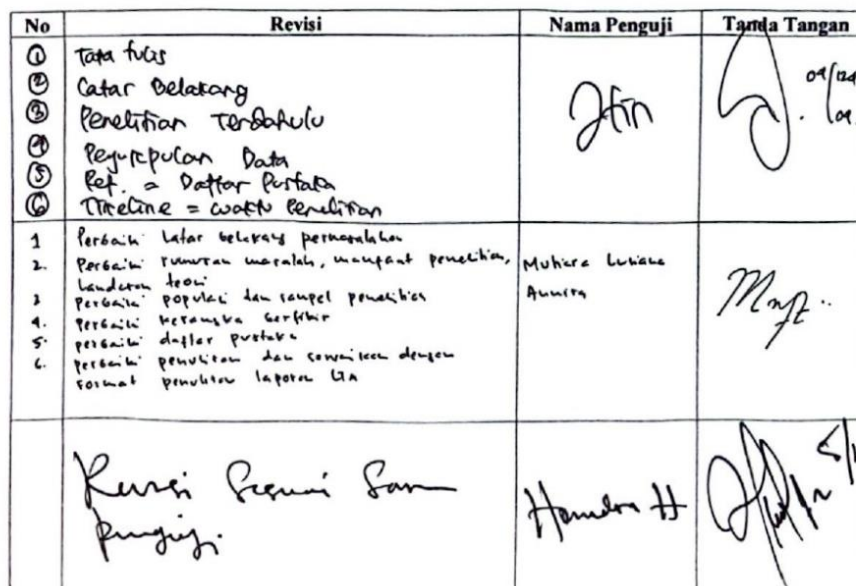 No Revisi Nama Penguji Tanda Tangan
① Tata tulis
② Latar Belakang
③ Penelitian Terdahulu
④ Pengumpulan Data
⑤ Ref. = Daftar Pustaka
⑥ Timeline = waktu Penelitian
1 Perbaiki latar belakang permasalahan
2. Perbaiki rumusan masalah, manfaat penelitian, Mutiara
landasan teori
3 perbaiki populasi dan sampel penelitian Annisa
4. perbaiki kerangka berfikir
5. perbaiki daftar pustaka
6. perbaiki penulisan dan sesuaikan dengan
format penulisan laporan UA
Revisi Sesuai Saran
Penguji.